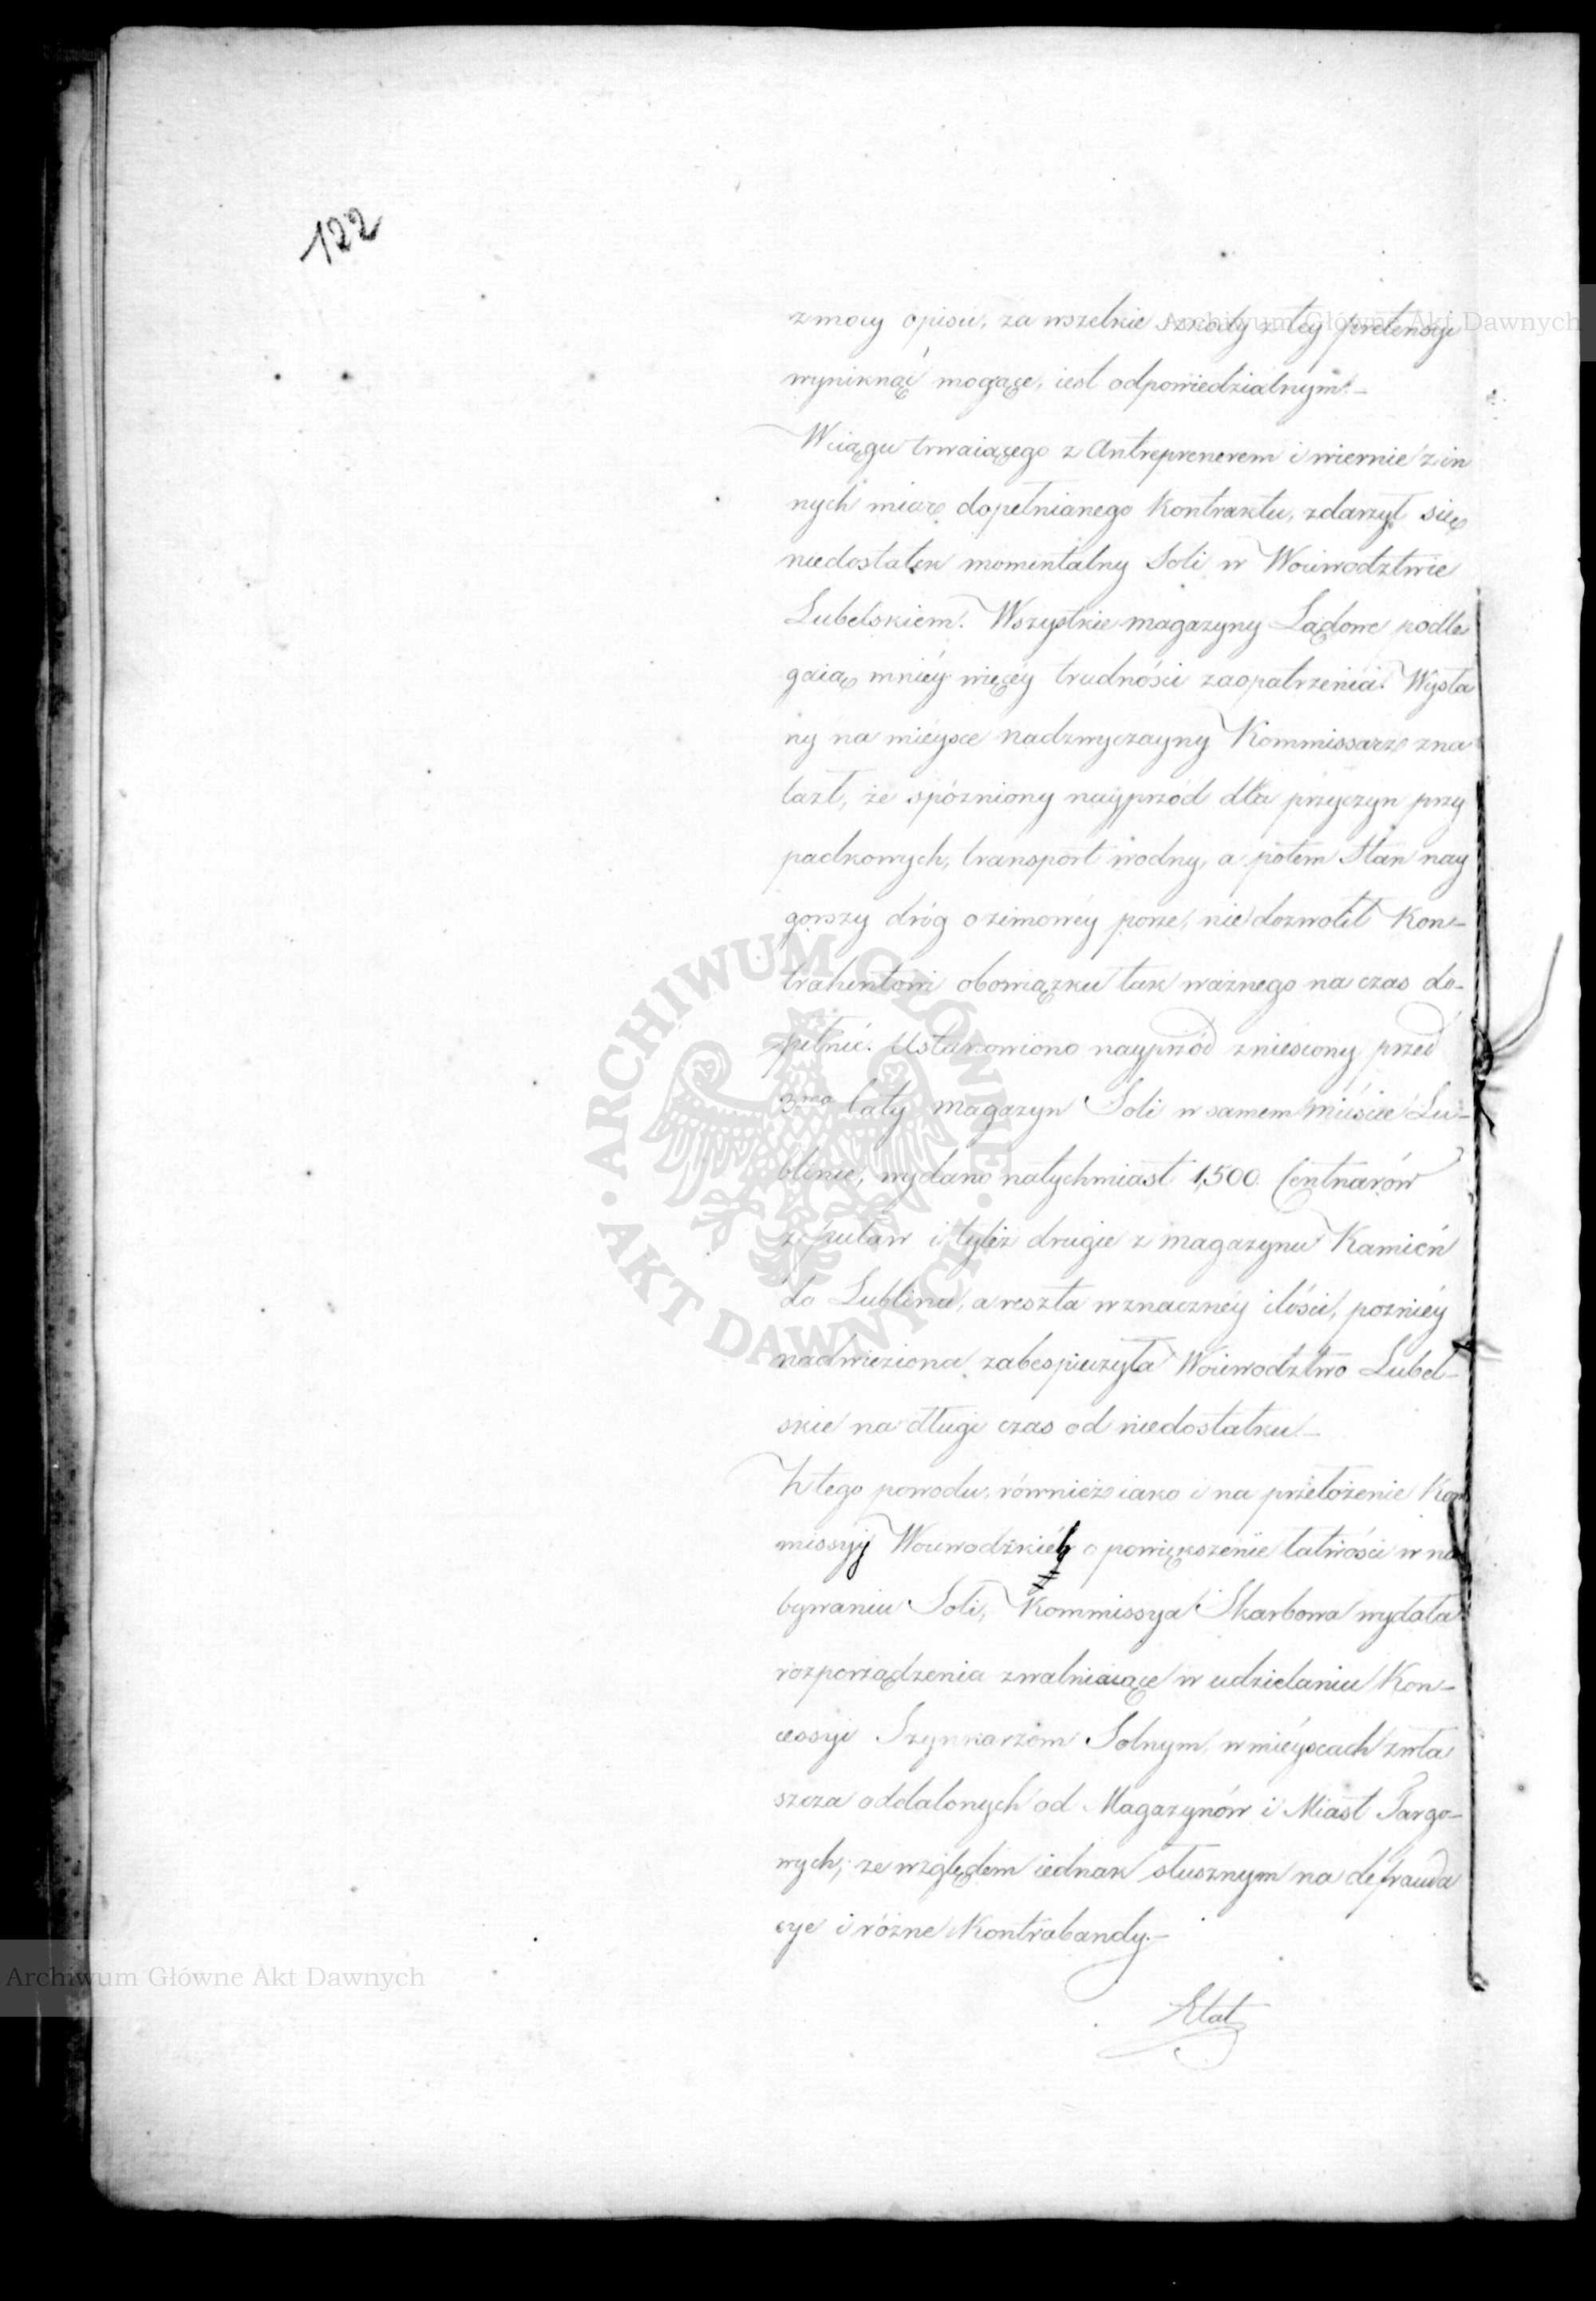 122
z mocy opisu, za wszelkie szkody z tey pretensyi
wyniknąć mogące, iest odpowiedzialnym.–
W ciągu trwaiącego z Antreprenerem i wiernie z in
nych miar dopełnianego Kontraktu, zdarzył się
niedostatek momentalny Soli w Woiewodztwie
Lubelskiem. Wszystkie magazyny Lądowe podle
gaią mniéy więcéy trudności zaopatrzenia. Wysła
ny na mieysce nadzwyczayny Kommissarz zna
lazł, że spózniony nayprzód dla przyczyn przy
padkowych, transport wodny, a potem stan nay
gorszy dróg o zimowéy porze, nie dozwolił Kon–
trahentowi obowiązku tak ważnego na czas do–
pełnić. Ustanowiono nayprzód zniesiony przed
3ma laty magazyn Soli w samem mieście Lu–
blinie, wydano natychmiast 1,500. Centnarów
z puław i tyleż drugie z magazynu Kamień
do Lublina, a reszta w znacznéy ilości, pozniéy
nadwieziona zabespieczyła Woiewodztwo Lubel–
skie na długi czas od niedostatku.–
Z tego powodu, również iako i na przełożenie Kom
missyy Woiewodzkich o powiększenie łatwości w na
bywaniu Soli, Kommissya Skarbowa wydała
rozporządzenia zwalniaiące w udzielaniu Kon–
cessyi Szynkarzom Solnym, w mieyscach zwła
szcza oddalonych od Magazynów i Miast Targo–
wych, ze względem iednak słusznym na defrauda
cye i różne Kontrabandy.–
Etat
Archiwum Główne Akt Dawnych
Archiwum Główne Akt Dawnych
ARCHIWUM GŁÓWNE · AKT DAWNYCH ·